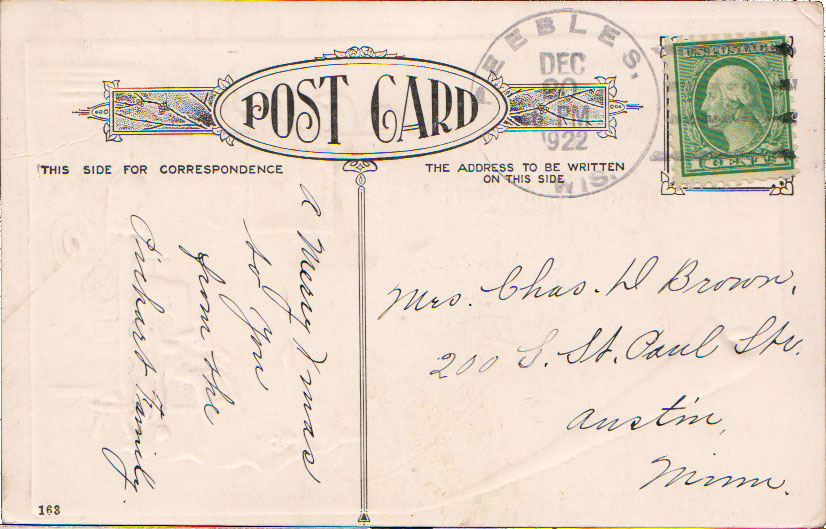 POST CARD
THIS SIDE FOR CORRESPONDENCE
THE ADDRESS TO BE WRITTEN
ON THIS SIDE
PEEBLES,
DEC
PM
1922
WIS.
U.S. POSTAGE
1 CENT 1
A Merry Xmas
to You
from the
Pichart Family.
Mrs. Chas. D Brown,
200 S. St. Paul Str.
Austin,
Minn.
163